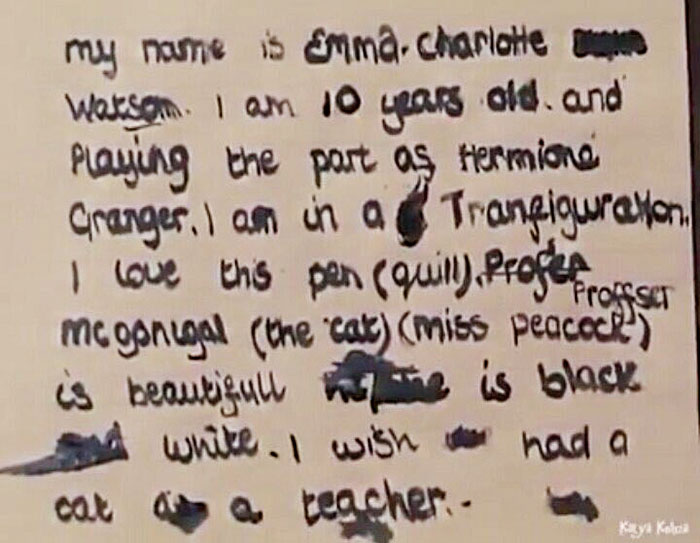 my name is Emma. Charlotte
Watsom. I am 10 years old. and
Playing the part as Hermione
Granger. I am in a Tranfiguration.
I love this pen (quill). Profer
Proffser
mcgonigal (the cat) (miss peacock)
is beautifull is black
white. I wish had a
cat a teacher.-
Katya Kolmia